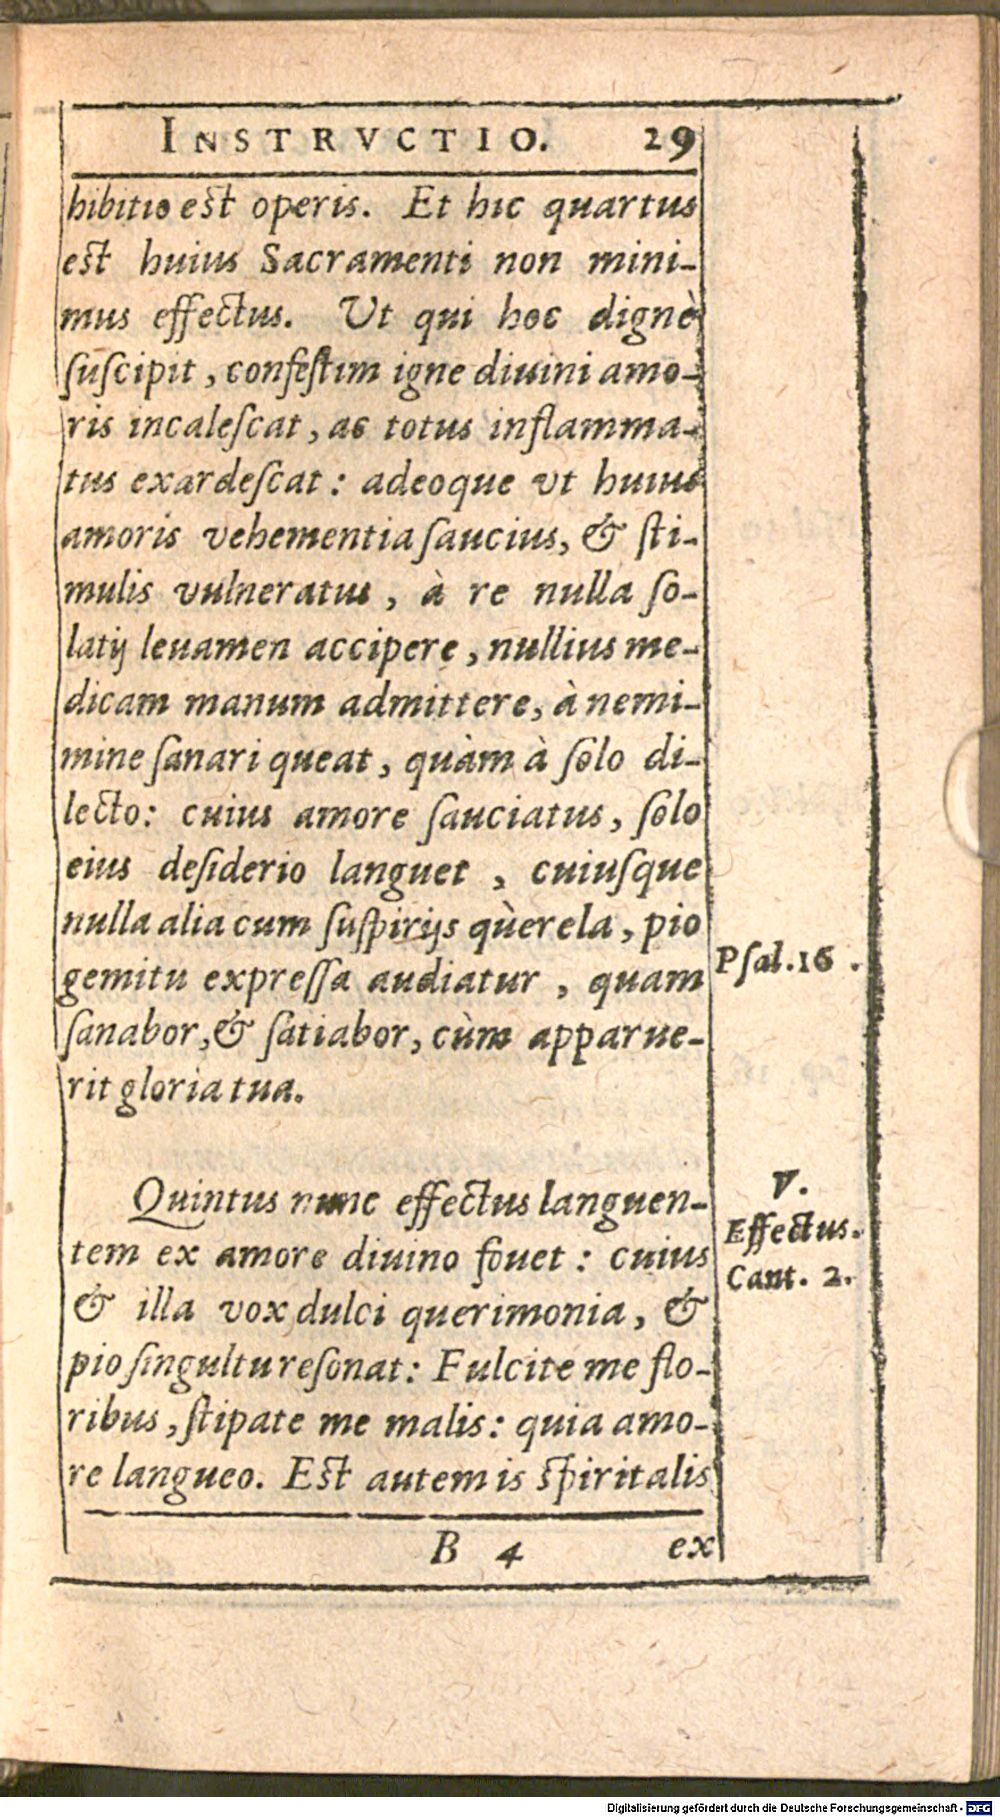 INSTRVCTIO. 29
hibitio est operis. Et hic quartus
est huius Sacramenti non mini-
mus effectus. Ut qui hoc dignè
ſuſcipit, confeſtim igne diuini amo-
ris incaleſcat, ac totus inflamma-
tus exardeſcat: adeoque vt huius
amoris vehementia ſaucius, & ſti-
mulis vulneratus, à re nulla ſo-
latij leuamen accipere, nullius me-
dicam manum admittere, à nemi-
mine ſanari queat, quàm à ſolo di-
lecto: cuius amore ſauciatus, ſolo
eius deſiderio languet, cuiuſque
nulla alia cum ſuſpirijs quèrela, pio
gemitu expreſſa audiatur, quam
Pſal. 16.
ſanabor, & ſatiabor, cùm apparue-
rit gloria tua.
Quintus nunc effectus languen-
V.
Effectus.
Cant. 2.
tem ex amore diuino fouet: cuius
& illa vox dulci querimonia, &
pio ſingultu reſonat: Fulcite me flo-
ribus, ſtipate me malis: quia amo-
re langueo. Est autem is ſpiritalis
B 4 ex
Digitalisierung gefördert durch die Deutsche Forschungsgemeinschaft - DFG